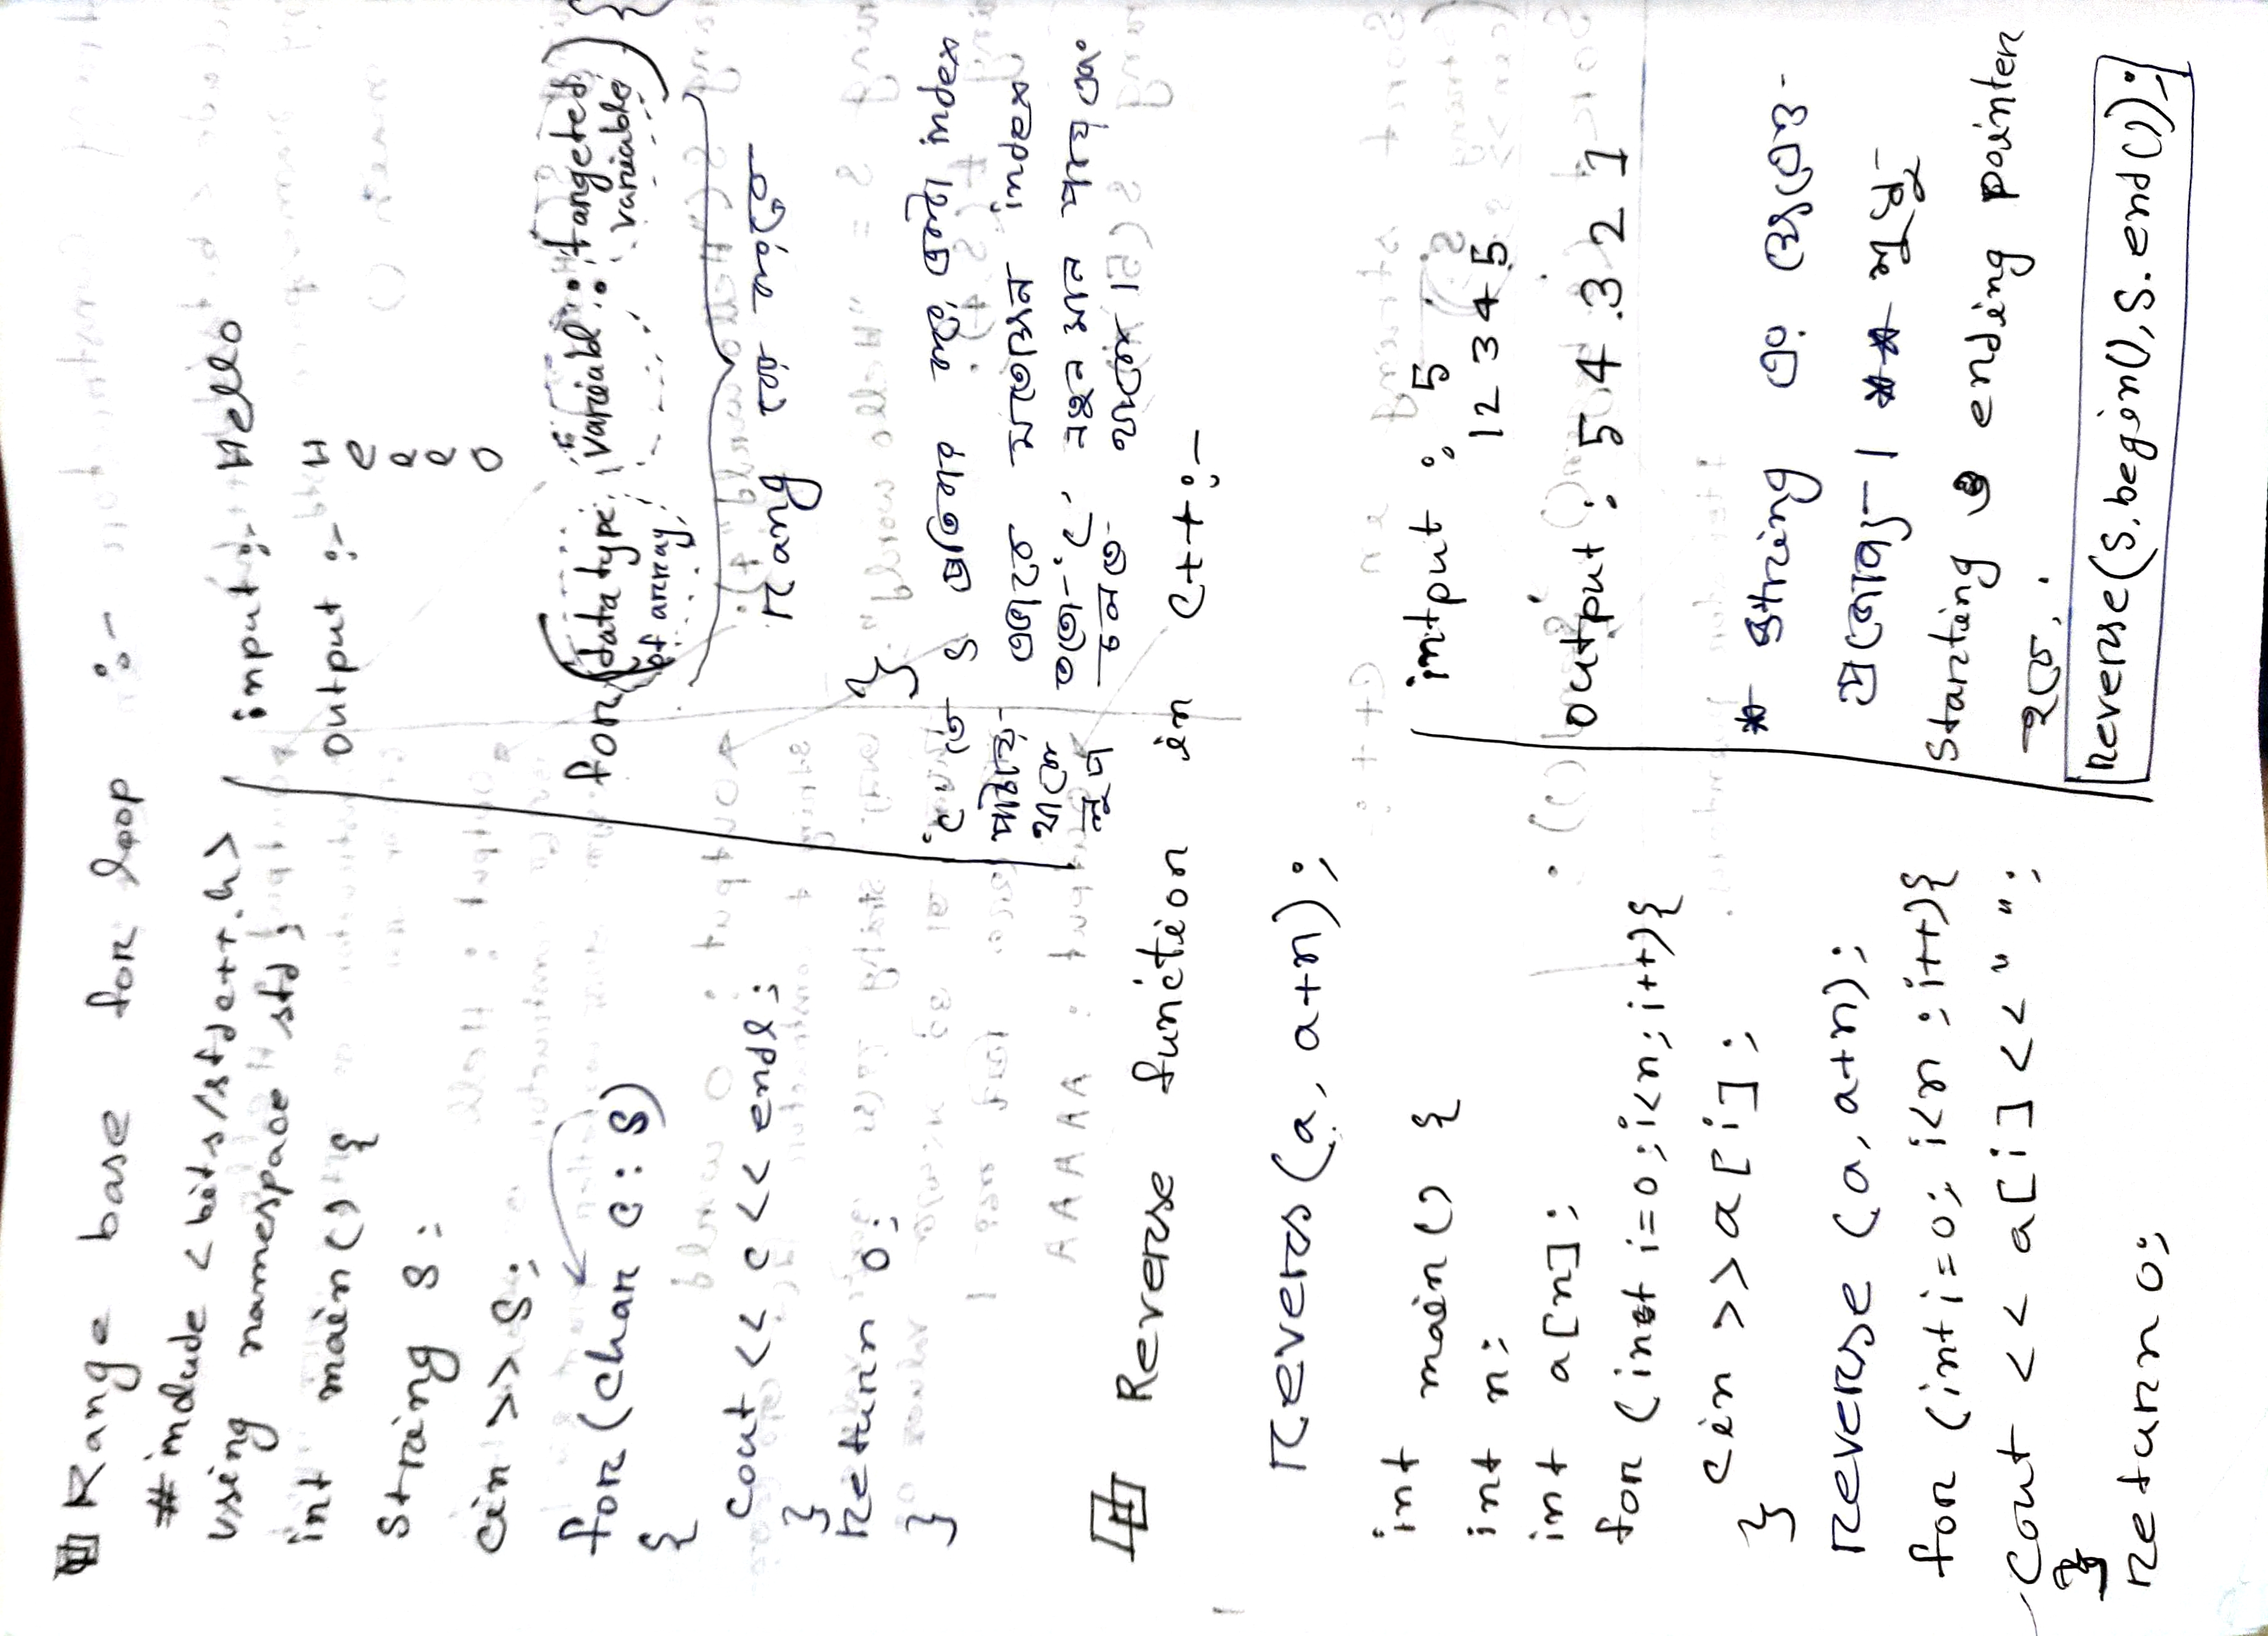 Range base for loop :-
#include <bits/stdc++.h>
using namespace std;
int main() {
string s;
cin >> s;
for (char c : s)
{
cout << c << endl;
}
return 0;
}
input :- Hello
output :- H
e
l
l
o
for (data type variabl : targeted {
of array variable)
rang
}
'c' তে s প্রতিবার করে একটা index
পাঠায় এভাবে যতোক্ষন index
থাকে ততো 'c' নতুন মান পায় এবং
লুপ চলতে থাকে।
Reverse function in C++:-
revers (a, a+n);
int main() {
int n;
int a[n];
for (int i=0; i<n; i++){
cin >> a[i];
}
reverse (a, a+n);
for (int i=0; i<n; i++){
cout << a[i] << " ";
}
return 0;
intput : 5
1 2 3 4 5
output : 5 4 3 2 1
* string এর ক্ষেত্রেও
প্রযোজ্য। ** শুধু
starting ও ending pointer
হবে,
reverse(s.begin(), s.end());